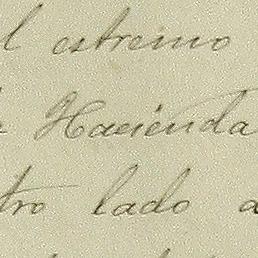 l estremo
Hacienda
tro lado a